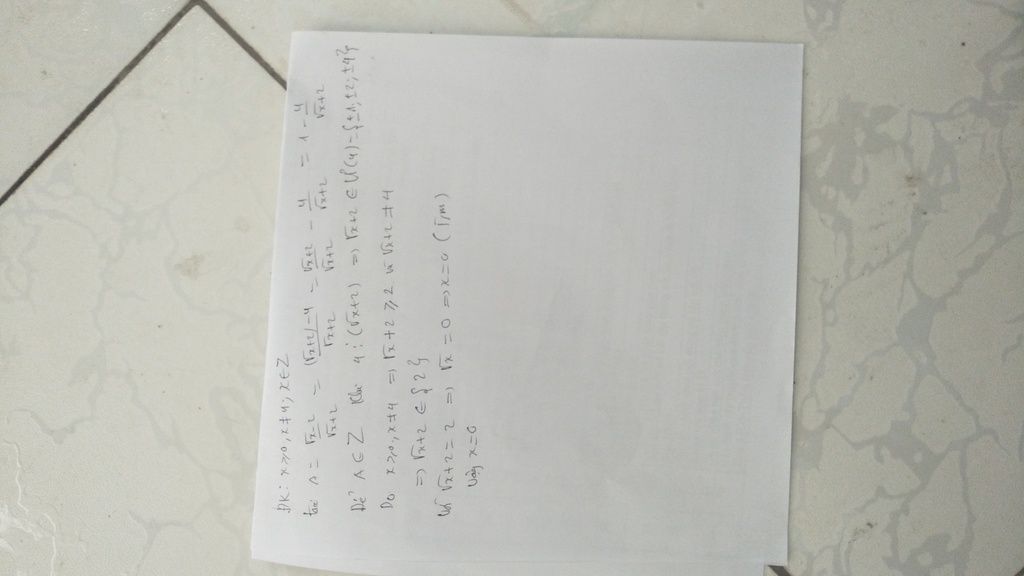 ĐK: x≥0, x≠4; x∈Z
ta có A = √x-2/√x+2 = (√x+2)-4/√x+2 = √x+2/√x+2 - 4/√x+2 = 1 - 4/√x+2
Để A∈Z khi 4⋮(√x+2) => √x+2 ∈ Ư(4)={±1;±2;±4}
Do x≥0, x≠4 => √x+2≥2 và √x+2≠4
=> √x+2 ∈ {2}
Với √x+2=2 => √x=0 => x=0 (T/m)
Vậy x=0